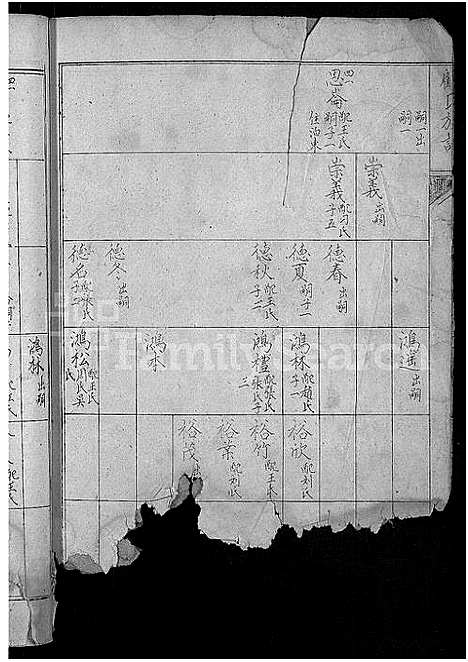 嗣一出
嗣一
四
思崙 配王氏
嗣子一
住泊朱
崇義 出嗣
崇義 配刁氏
子五
德春 出嗣
德夏 嗣子一
德秋 配王氏
子二
德冬 出嗣
德名 配張氏
子二
鴻遥 出嗣
鴻林 配趙氏
子一
鴻禮 配張氏
張氏子
三
鴻木
鴻松 配王氏
周氏吳
氏
鴻林 出嗣
裕欣 配刘氏
裕竹 配王氏
裕葉 配刘氏
裕茂
FamilySearch